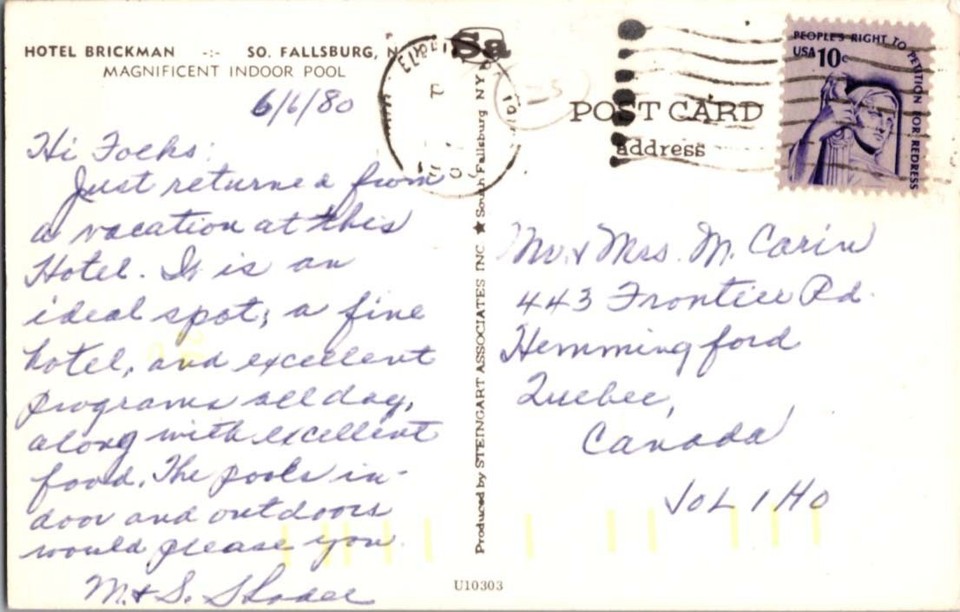 HOTEL BRICKMAN -:- SO. FALLSBURG, N.
MAGNIFICENT INDOOR POOL
6/6/80
Hi Folks:
Just returned from
a vacation at this
Hotel. It is an
ideal spot; a fine
hotel, and excellent
programs all day,
along with excellent
food. The pools in-
door and outdoors
would please you.
M. & S.
Produced by STEINGART ASSOCIATES INC ★ South Fallsburg NY
U10303
POST CARD
address
PEOPLE'S RIGHT TO PETITION FOR REDRESS
USA 10c
Mr. & Mrs. M. Carin
443 Frontier Rd.
Hemmingford
Quebec,
Canada
J0L 1H0